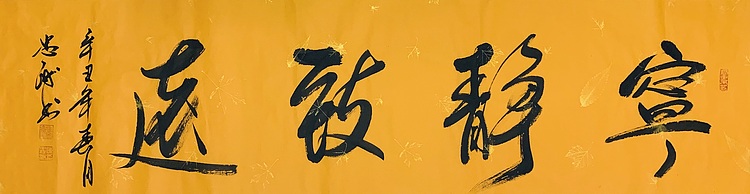 寧靜致遠
辛丑年春月
忠民书